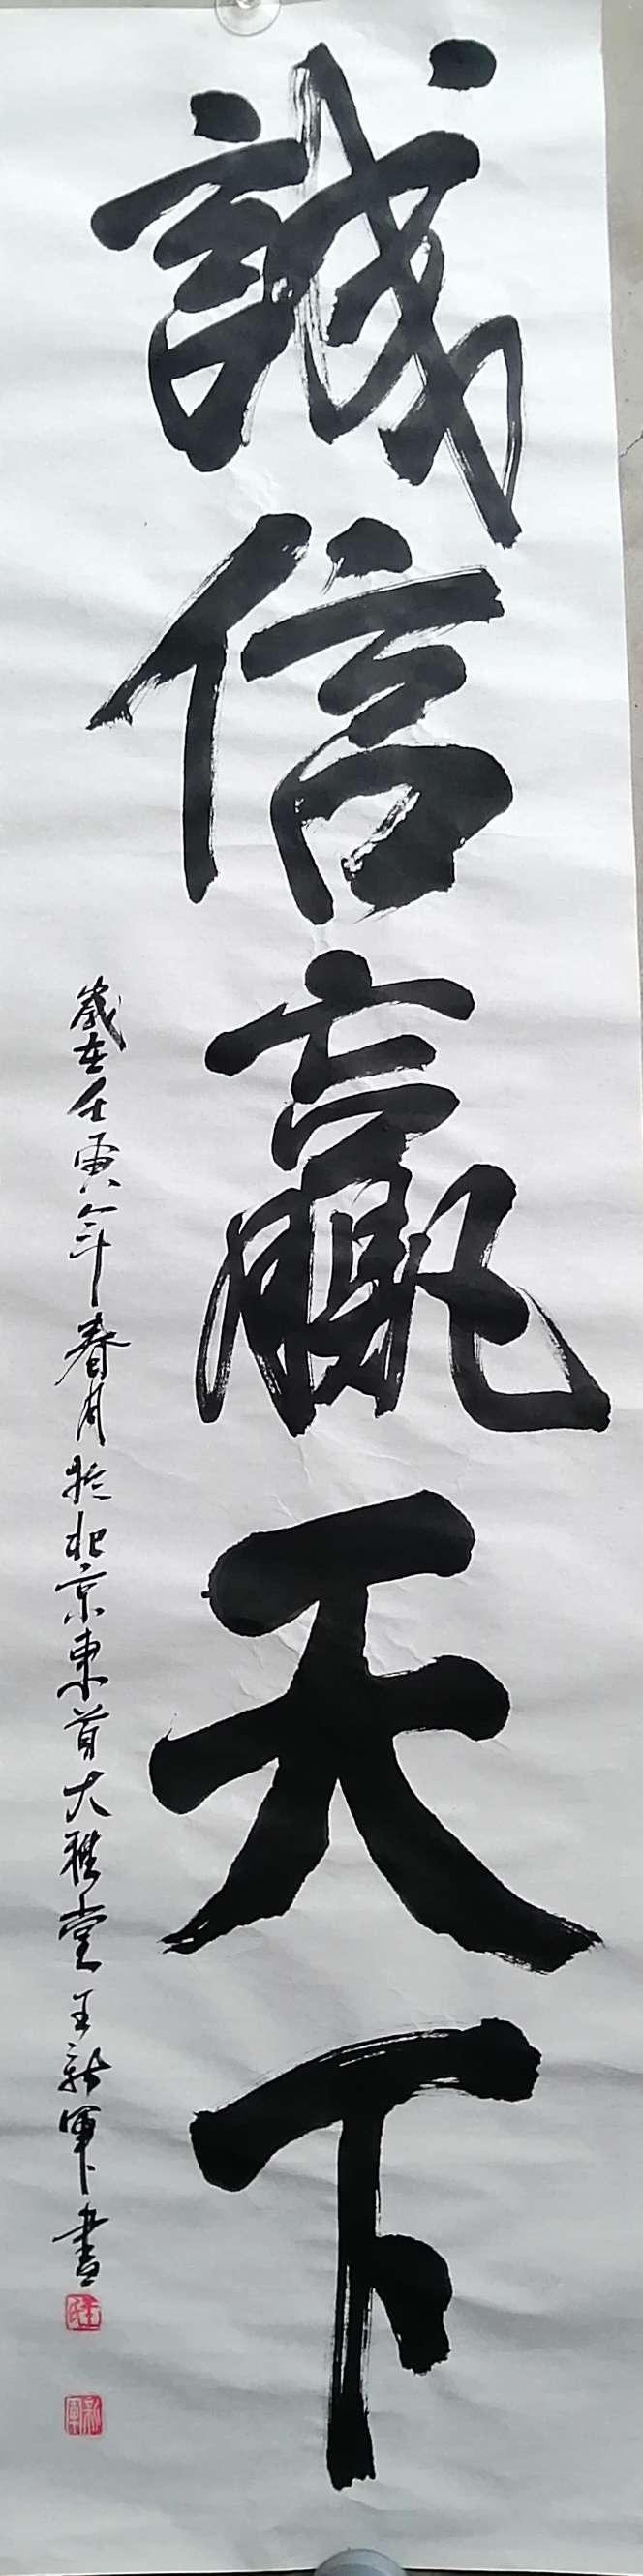 誠信贏天下
歲在壬寅年春月於北京東首大雅堂王新軍書
王氏
新軍